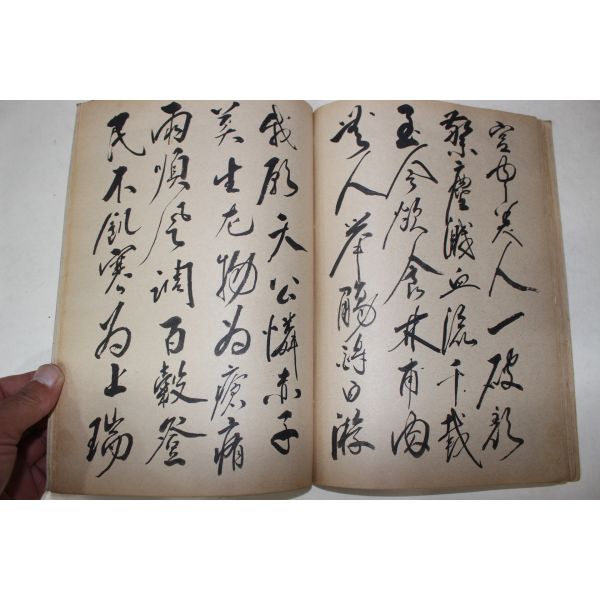 宮中美人一破顏
驚塵濺血流千載
至今欲食林甫肉
無人舉觴酹伯游
我願天公憐赤子
莫生尤物為瘡痏
雨順風調百穀登
民不飢寒為上瑞